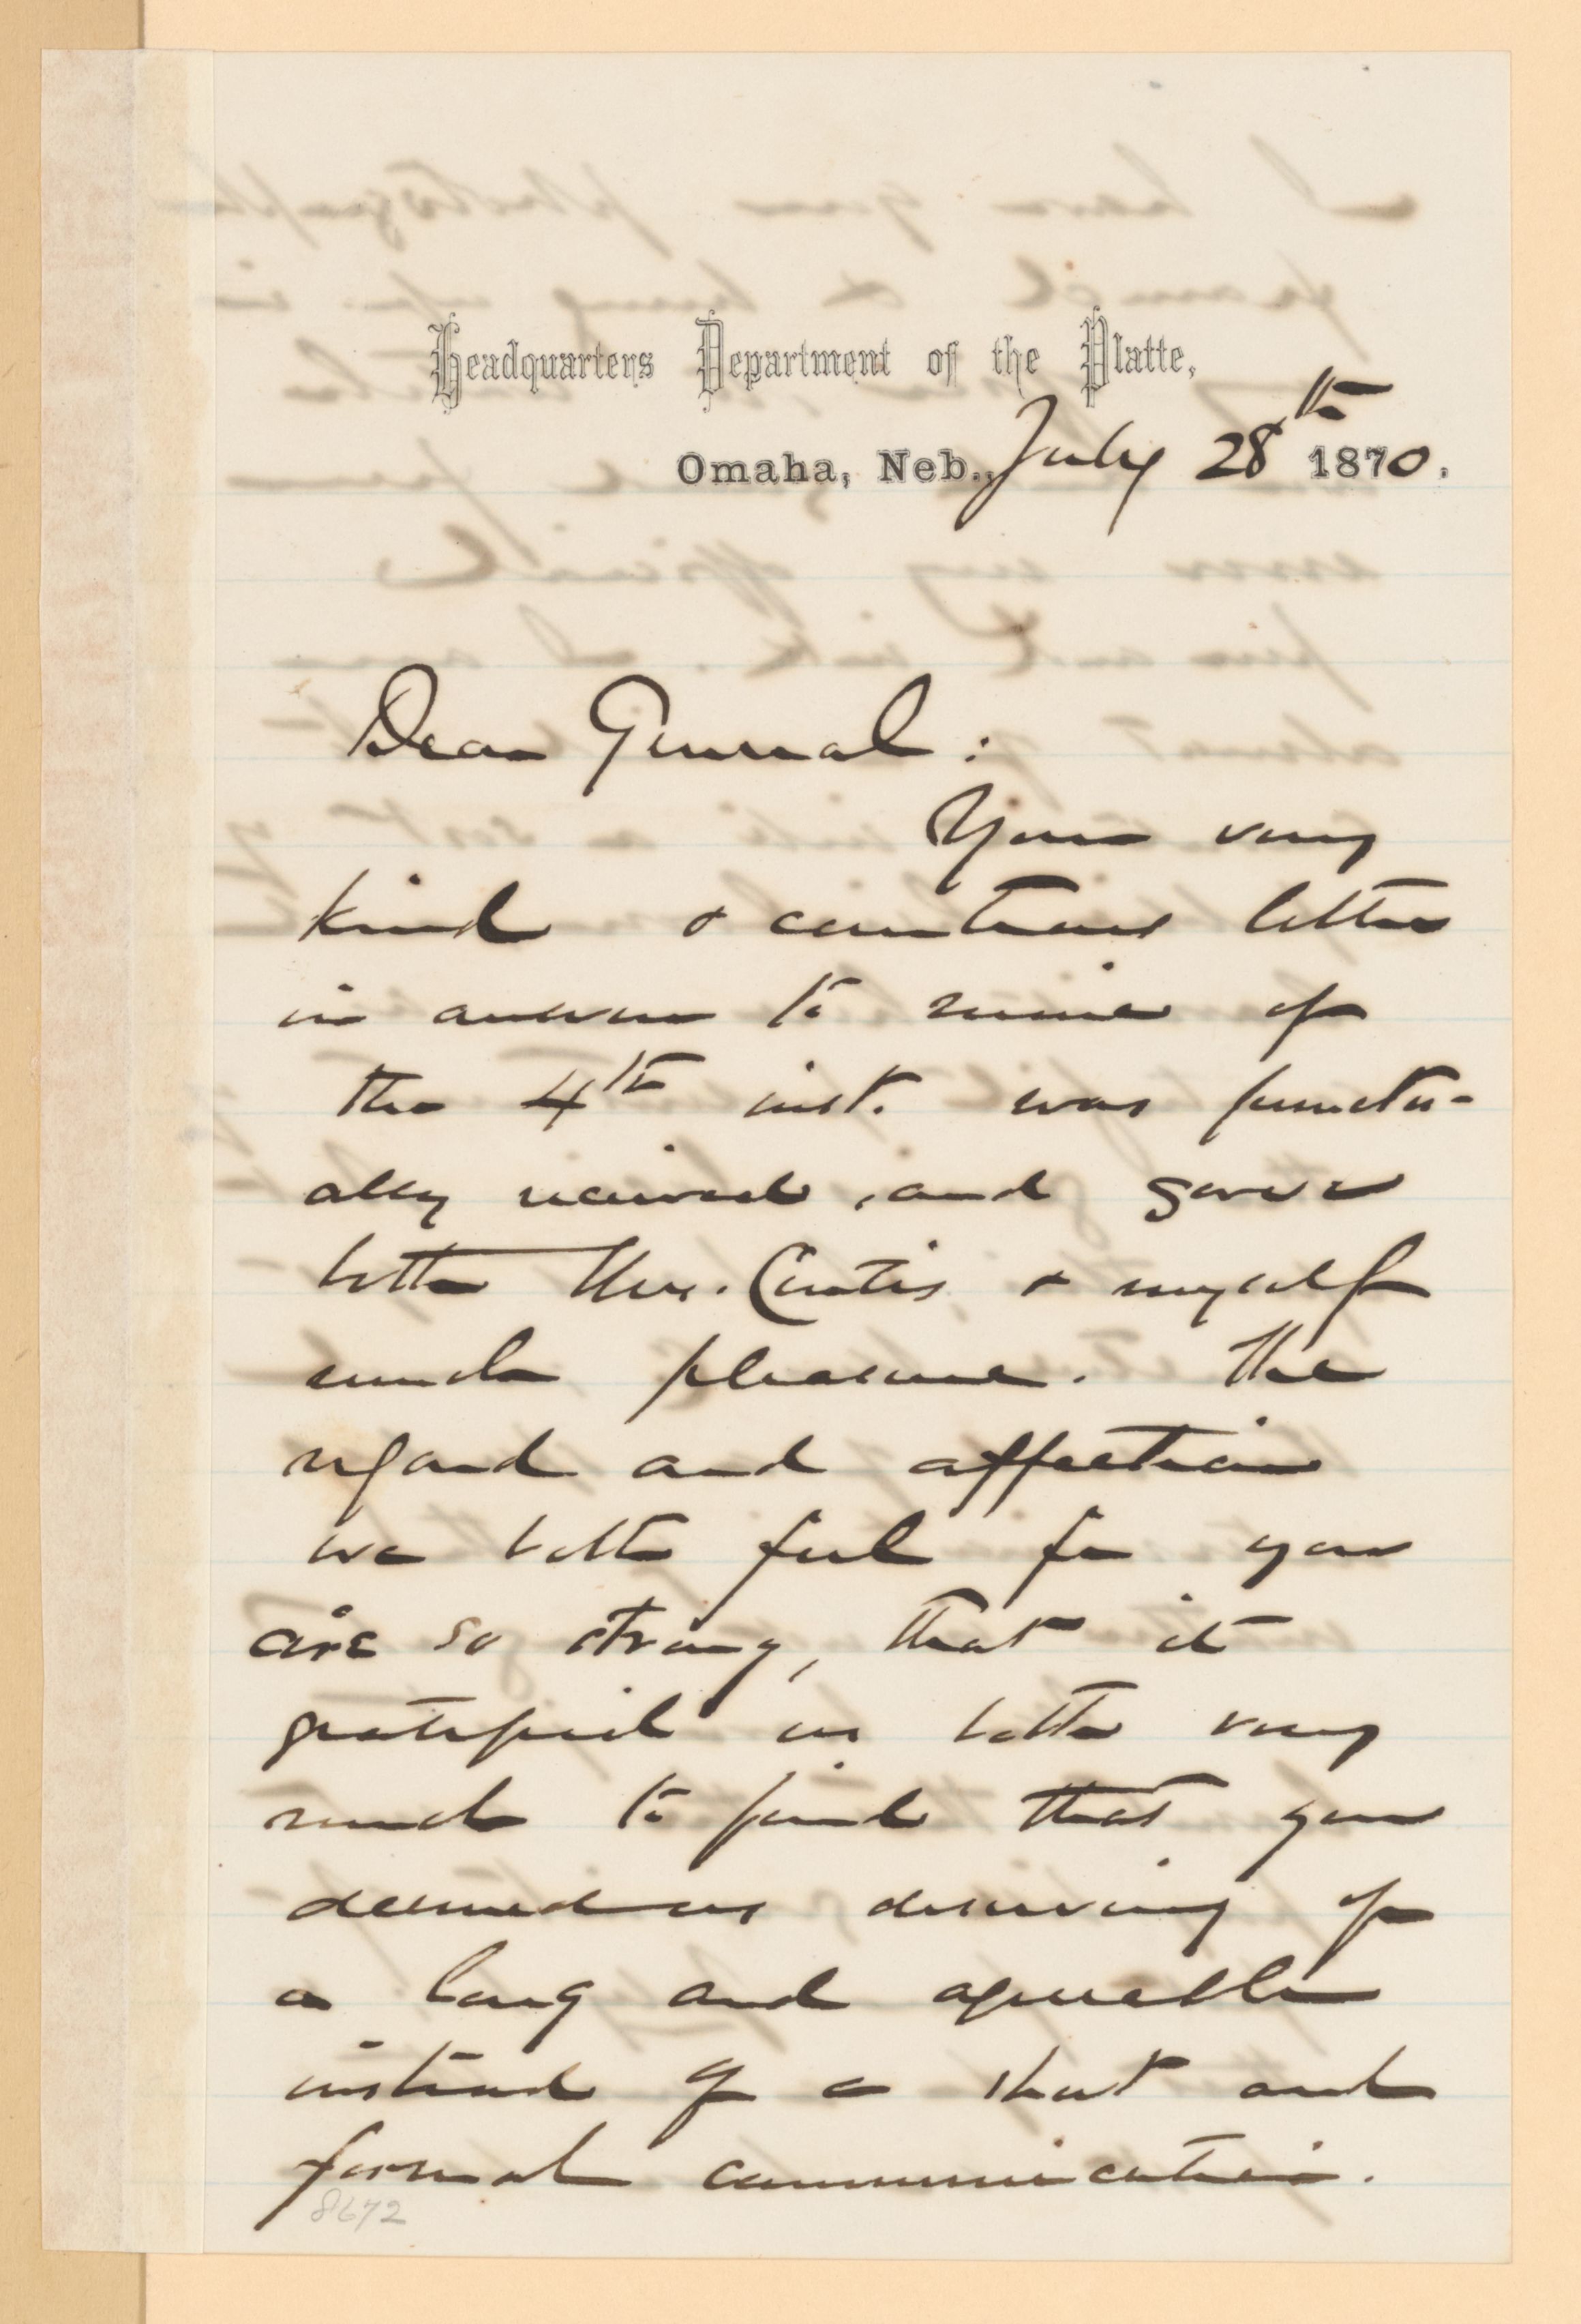 Headquarters Department of the Platte,
Omaha, Neb., July 28th 1870.
Dear General:
Your very
kind & courteous letter
in answer to mine of
the 4th inst. was punctu-
ally received, and gave
both Mrs. Curtis, & myself
much pleasure. The
regard and affection
we both feel for you
are so strong, that it
gratified us both very
much to find that you
deemed us deserving of
a long and agreeable
instead of a short and
formal communication.
8672